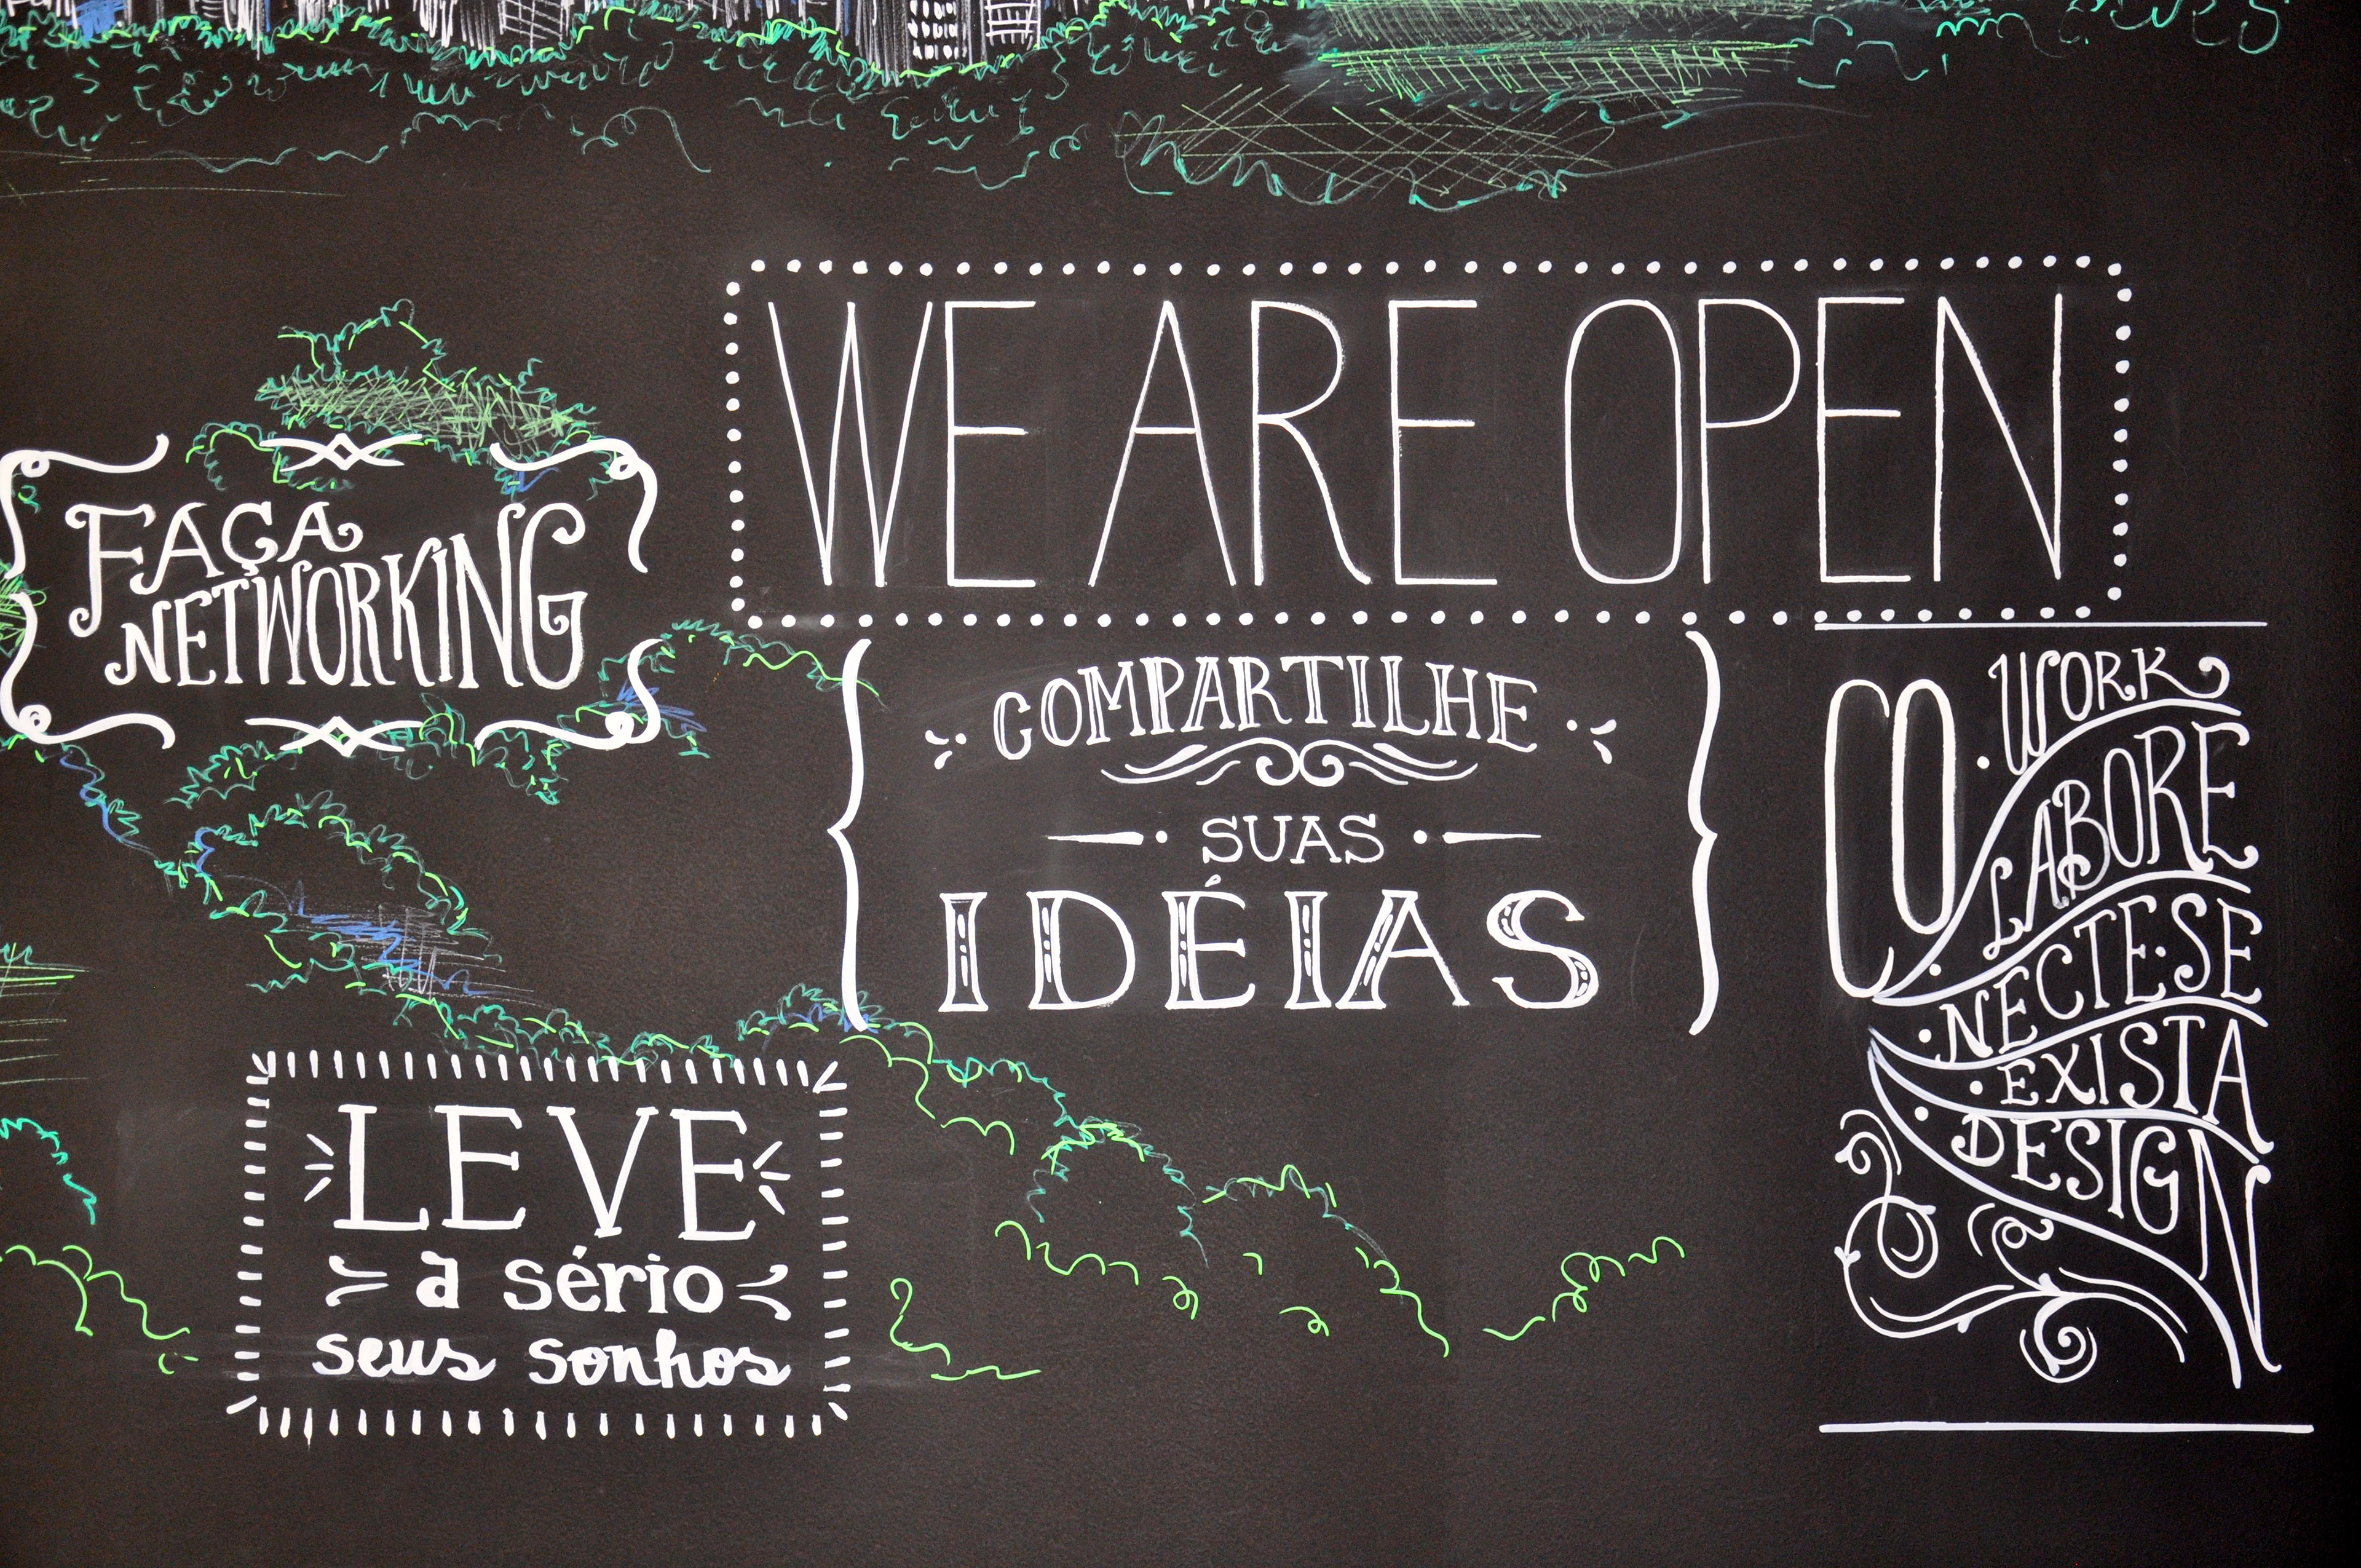 WE ARE OPEN
FAÇA
NETWORKING
COMPARTILHE
SUAS
IDÉIAS
LEVE
a sério
seus sonhos
CO
WORK
LABORE
NECTE-SE
EXISTA
DESIGN